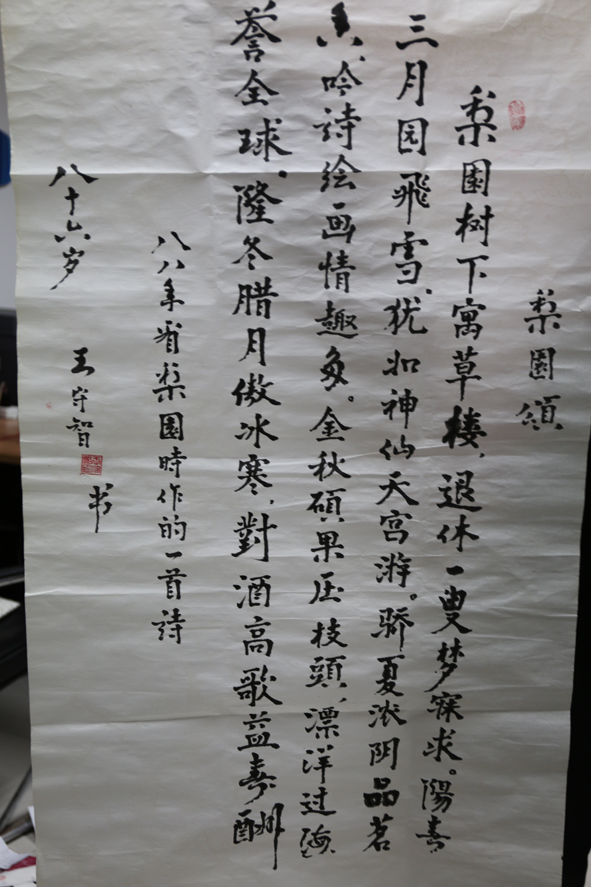 梨園頌
梨園树下寓草楼，退休一叟梦寐求。陽春
三月园飛雪，犹如神仙天宫游。骄夏浓阴品茗
香，吟詩绘画情趣多。金秋碩果压枝頭，漂洋过海
誉全球。隆冬腊月傲冰寒，對酒高歌益寿酬
八八年省梨園時作的一首詩
八十六岁
王守智
书